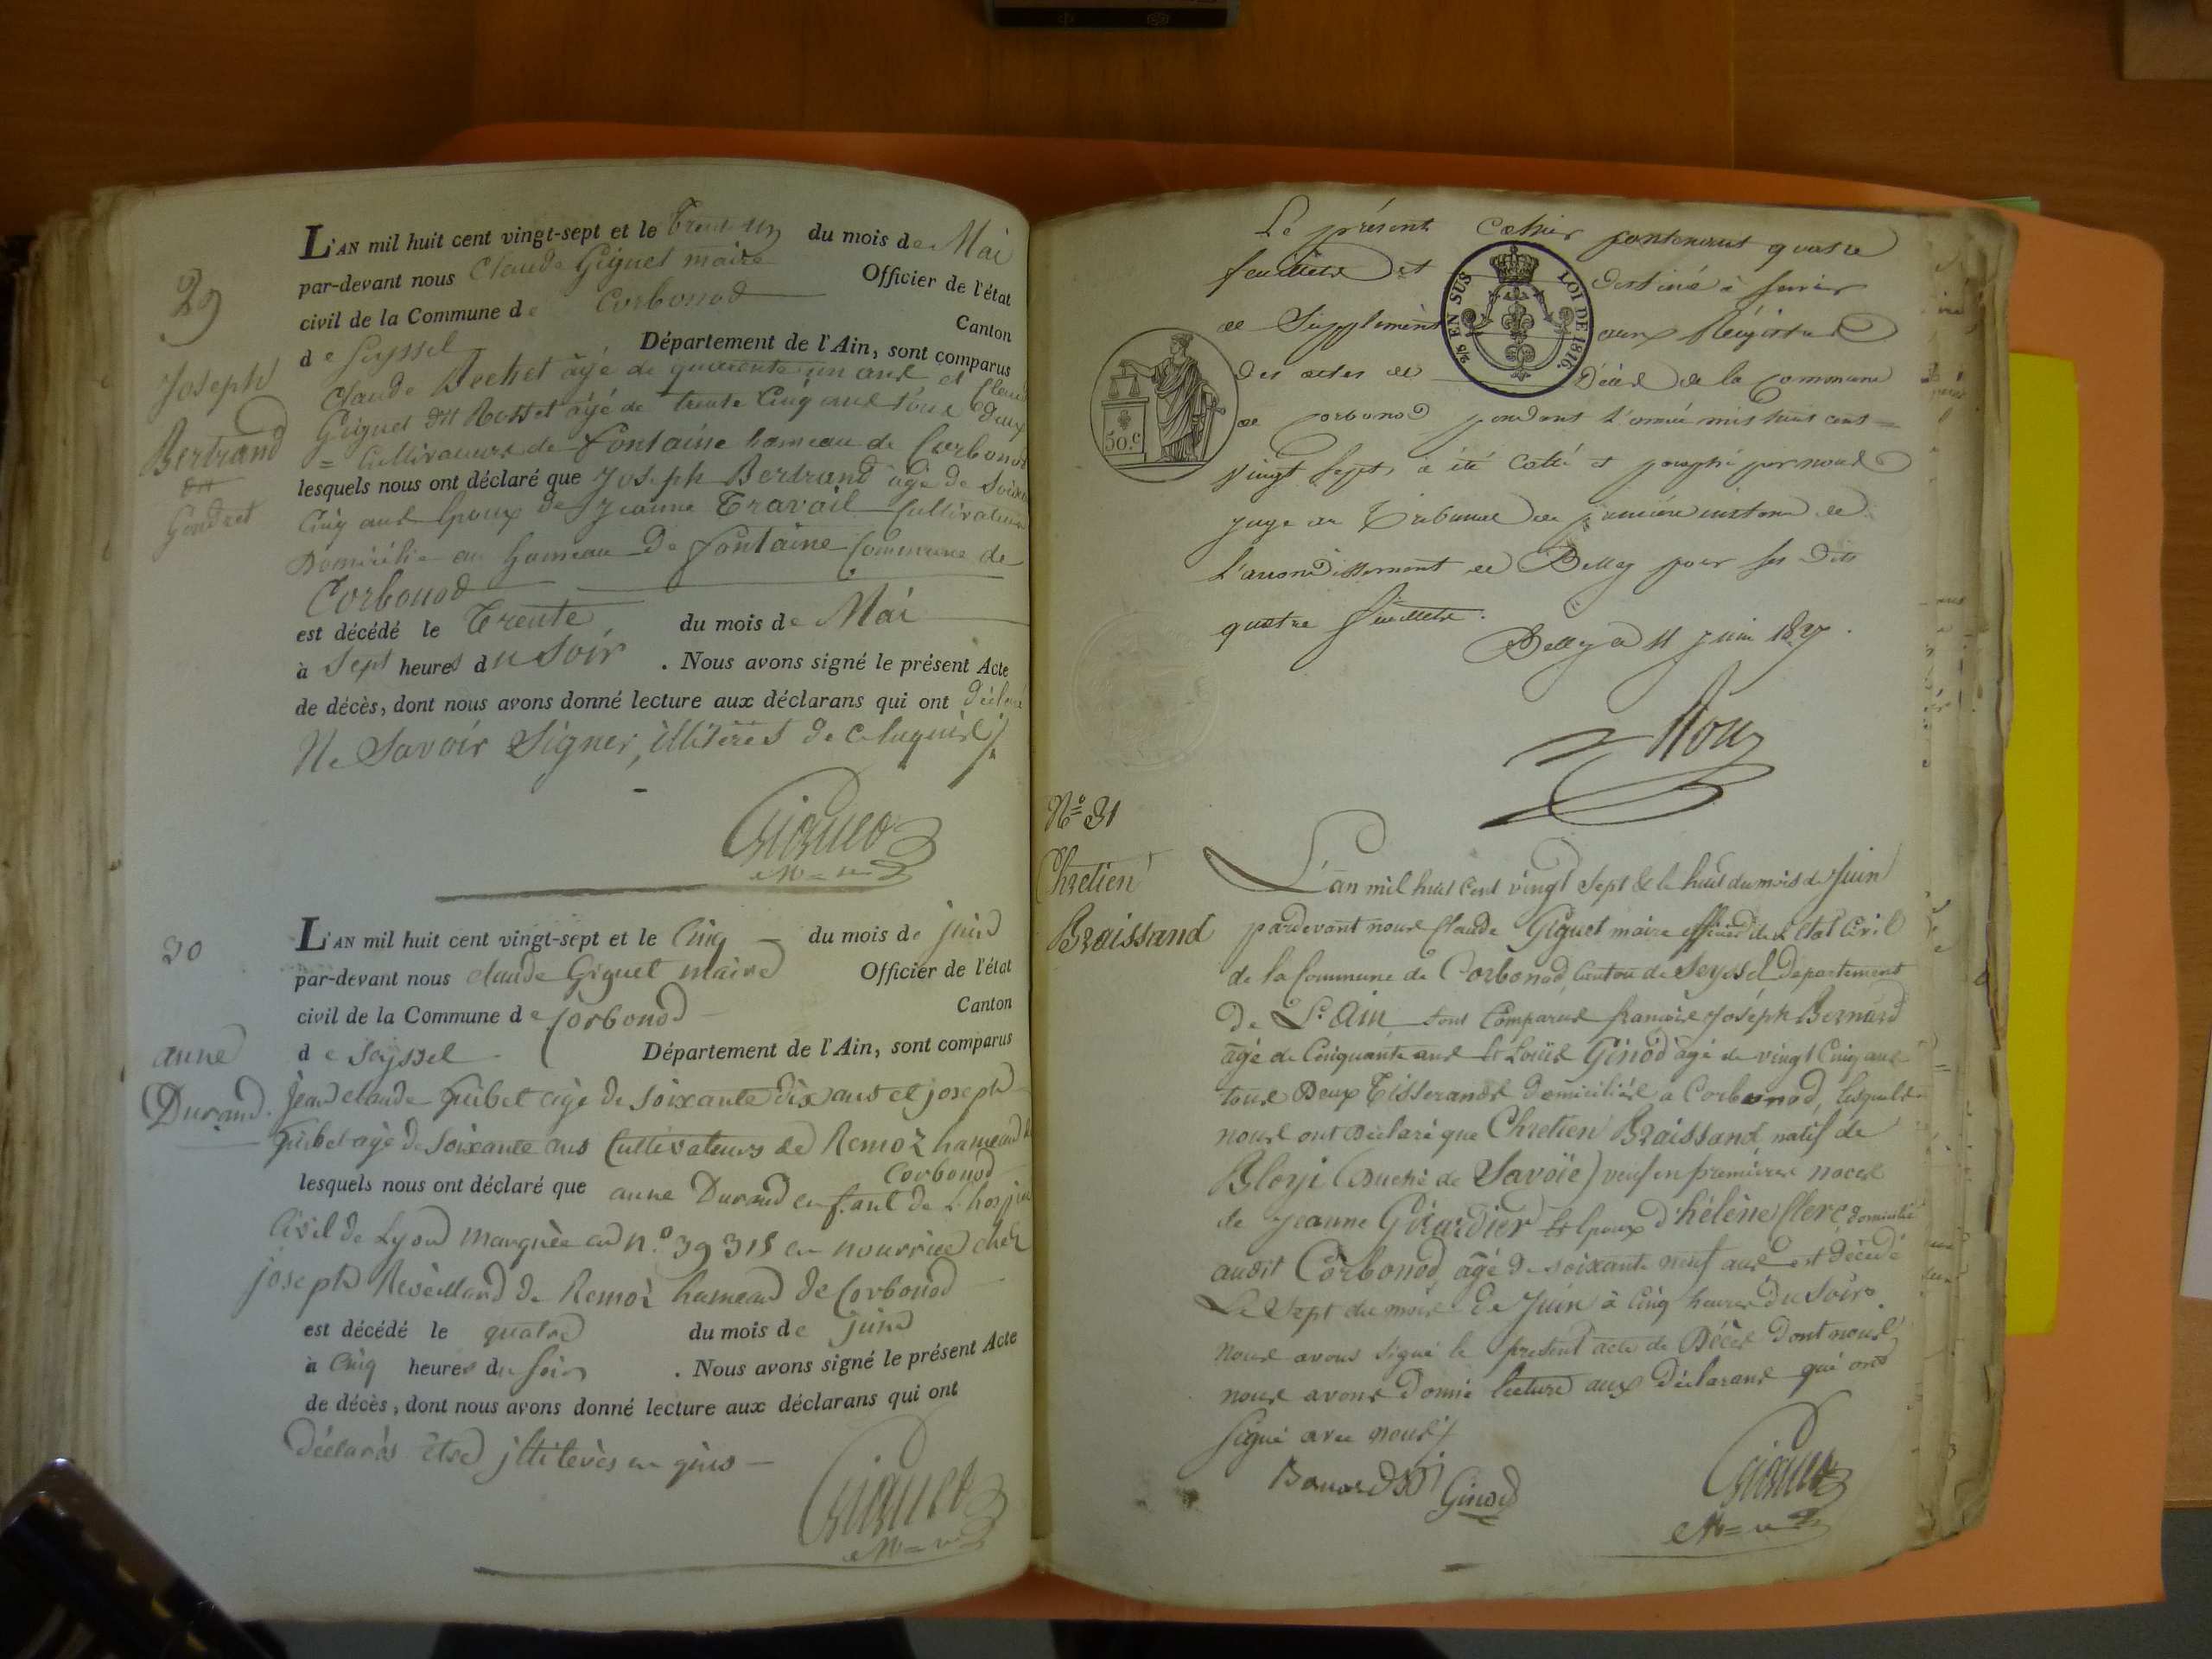 29
Joseph
Bertrand
dit
Gondret
L'AN mil huit cent vingt-sept et le Trente un du mois de Mai
par-devant nous Claude Giguet maire Officier de l'état
civil de la Commune de Corbonod Canton
de Seyssel Département de l'Ain, sont comparus
Claude Bechet âgé de quarante un ans et
Giguet dit Rosset âgé de trente Cinq ans tous deux
= Cultivateurs de fontaine hameau de Corbonod
lesquels nous ont déclaré que Joseph Bertrand âgé de
Cinq ans Epoux de Jeanne Travail Cultivateur
Domicilié au hameau De fontaine Commune de
Corbonod
est décédé le Trente du mois de Mai
à Sept heures du Soir . Nous avons signé le présent Acte
de décès, dont nous avons donné lecture aux déclarans qui ont déclaré
Ne Savoir Signer, illiterés de ce requis /.
Giguet
30
anne
Durand.
L'AN mil huit cent vingt-sept et le Cinq du mois de juin
par-devant nous claude Giguet maire Officier de l'état
civil de la Commune de Corbonod Canton
de Seyssel Département de l'Ain, sont comparus
jean claude quibet âgé de soixante dix ans et joseph
quibet agé de Soixante ans Cultivateurs de Remoz hameau de
Corbonod
lesquels nous ont déclaré que anne Durand enfant de L'hospice
Civil de Lyon marquée au n.° 39318 en nourrice chez
joseph Réveillard de Remoz hameau de Corbonod
est décédé le quatre du mois de juin
à Cinq heures du soir . Nous avons signé le présent Acte
de décès, dont nous avons donné lecture aux déclarans qui ont
Déclarés être jllitérés en quis —
Giguet
Le présent Cahier contenant quatre
feuillets et destiné à servir
de Supplément aux Régistres
des actes de Décès de la commune
de Corbonod pendant l'année mil huit cent =
vingt sept, a été coté et paraphé par nous
juge au Tribunal de première instance de
l'arrondissement de Belley pour ses dits
quatre feuillets.
Belley a 11 juin 1827.
2/5 EN SUS LOI DE 1816.
50.c
N.° 31
Chretien
Braissand
L'an mil huit Cent vingt Sept & le huit du mois de Juin
pardevant nous Claude Giguet maire officier de l'Etat Civil
de la Commune de Corbonod, Canton de Seyssel Département
De L'Ain sont Comparus françois Joseph Bernard
âgé de Cinquante ans & Louis Ginod âgé de vingt Cinq ans
tous Deux Tisserands Domiciliés à Corbonod, lesquels
nous ont Déclaré que Chretien Braissand natif de
Bloyi (Duché de Savoïe) veuf en premières noces
de Jeanne Girardier & Epoux d'hélène Clerc domicilié
audit Corbonod, âgé de soixante neuf ans est décédé
Le Sept du mois De Juin à Cinq heures Du Soir.
Nous avons signé le présent acte de Décès Dont nous
nous avons Donné lecture aux Déclarans qui ont
signé avec nous /.
Bernard Ginod Giguet